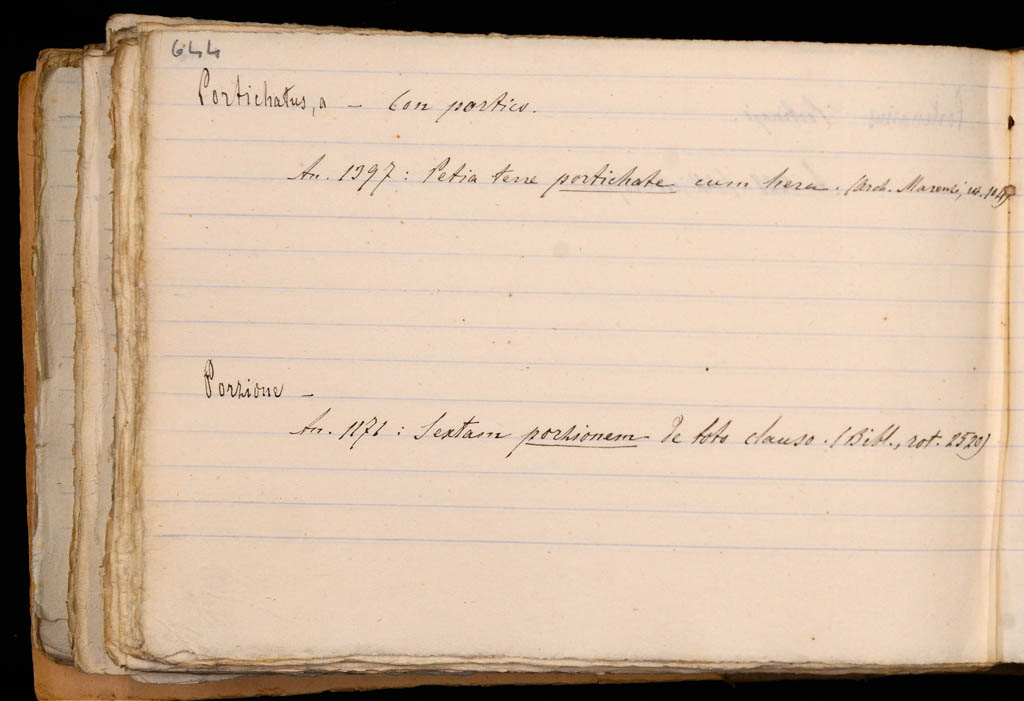 644
Portichatus, a — Con portico.
An. 1397: Petia terre portichate cum hera. (Arch. Marenzi,
Porzione —
An. 1171: Sextam portionem de toto clauso. (Bibl., rot. 2520)